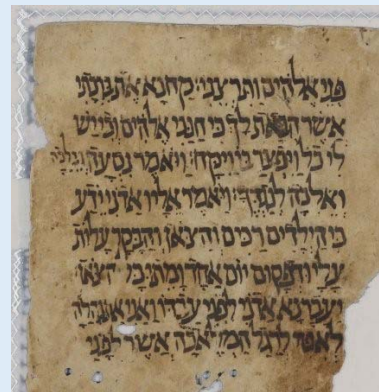 פני אלהים ותרצני׃ קח נא את ברכתי
אשר הבאת לך כי חנני אלהים וכי יש
לי כל ויפצר בו ויקח׃ ויאמר נסעה ונלכה
ואלכה לנגדך׃ ויאמר אליו אדני ידע
כי הילדים רכים והצאן והבקר עלות
עלי ודפקום יום אחד ומתו כל הצאן
יעבר נא אדני לפני עבדו ואני אתנהלה
לאטי לרגל המלאכה אשר לפני